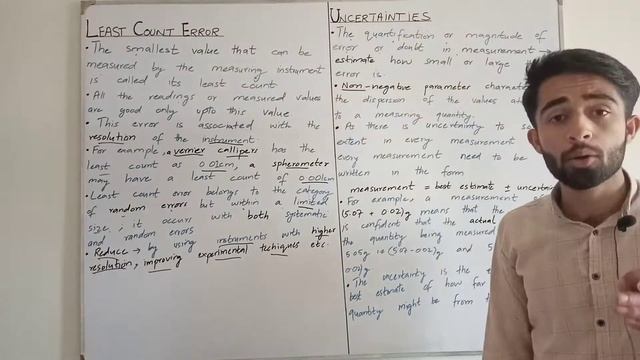 LEAST COUNT ERROR
• The smallest value that can be
measured by the measuring instrument
is called its least count
• All the readings or measured values
are good only upto this value
• This error is associated with the
resolution of the instrument
• For example, a vernier callipers has the
least count as 0.01cm, a spherometer
may have a least count of 0.001cm
• Least count error belongs to the category
of random errors but within a limited
size; it occurs with both systematic
and random errors
• Reduce → by using instruments with higher
resolution, improving experimental techniques etc.
UNCERTAINTIES
• The quantification or magnitude of
error or doubt in measurement →
estimate how small or large the
error is.
• Non-negative parameter
the dispersion of the values
to a measuring quantity.
• As there is uncertainty to
extent in every measurement
every measurement need to be
written in the form
measurement = best estimate ±
• For example, a measurement
(5.07 + 0.02)g means that the
is confident that the actual
the quantity being measured
5.05g is (5.07-0.02)g and
0.02)g
• The uncertainty is the
best estimate of how far
quantity might be from